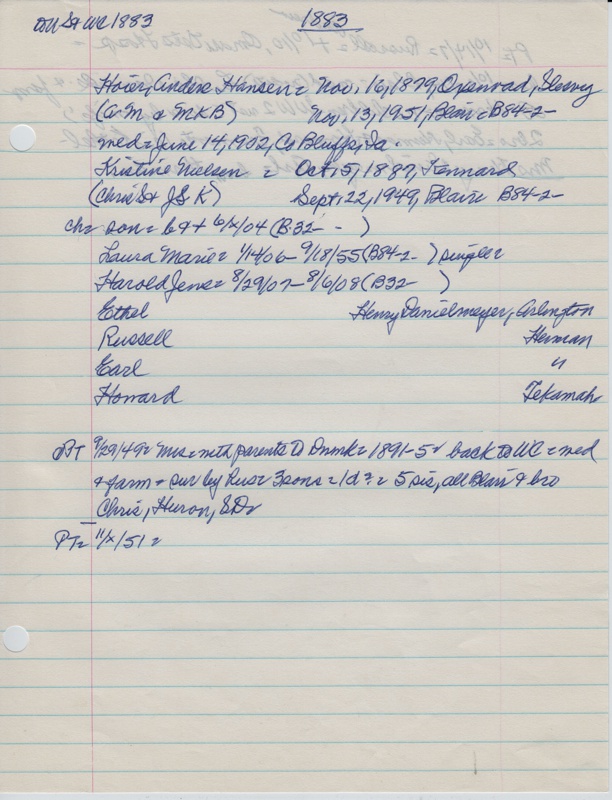 DM St WC 1883 1883
Hoier, Anders Hansen = Nov, 16, 1879, Openrad, Slesvig
(A.M & MKB) Nov, 13, 1951, Blair = B84-2-
med = June 14, 1902, Co Bluffs, Ia.
Kristine Nielsen = Oct, 5, 1887, Kennard
(Chris & J.S.K) Sept, 22, 1949, Blair B84-2-
ch = son = b&+ 6/x/04 (B-32- - )
Laura Marie = 1/14/06 - 9/18/55 (B84-2- ) single
Harold Jens = 8/29/07 - 8/6/08 (B32- )
Ethel Henry Danielmeyer, Arlington
Russell Herman
Earl "
Howard Tekamah
PT 9/29/49 = Mrs = with parents to Dnmk = 1891-5 = back to WC = med
& farm = sur by hus = 3 sons = 1 d ? = 5 sis, all Blair & bro
Chris, Huron, SD
PT = 11/x/51 =